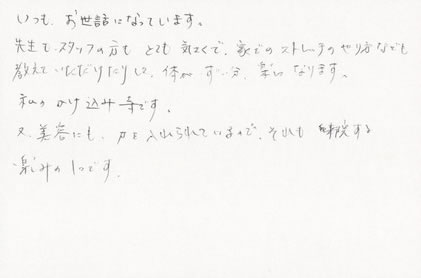 いつも、お世話になっています。
先生も、スタッフの方も とても 気さくで、家でのストレッチのやり方なども
教えていただけたりして、体が ずい分、楽に なります。
私の かけ込み寺です。
又、美容にも、力を 入れられているので、それも 来院する
楽しみの 1つです。